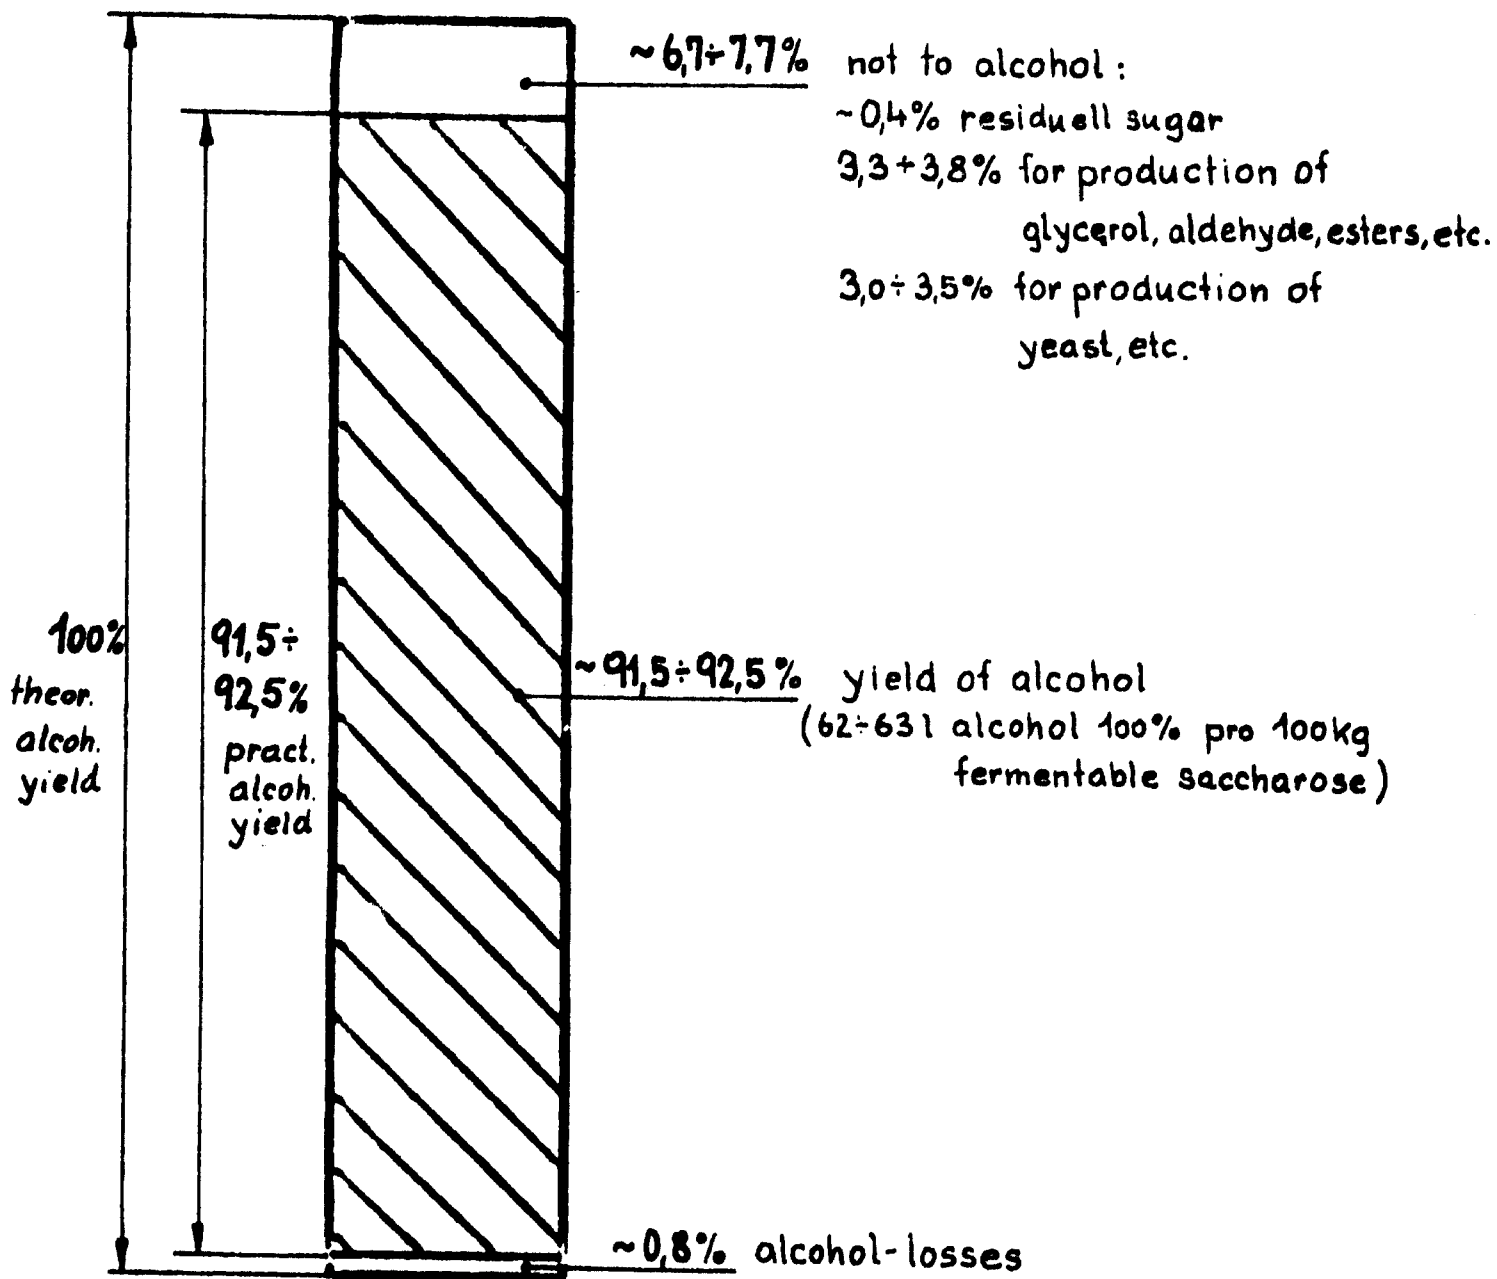 ~6,7÷7,7% not to alcohol:
~0,4% residuell sugar
3,3÷3,8% for production of
glycerol, aldehyde, esters, etc.
3,0÷3,5% for production of
yeast, etc.
100%
theor.
alcoh.
yield
91,5÷
92,5%
pract.
alcoh.
yield
~91,5÷92,5% yield of alcohol
(62÷63l alcohol 100% pro 100kg
fermentable saccharose)
~0,8% alcohol-losses